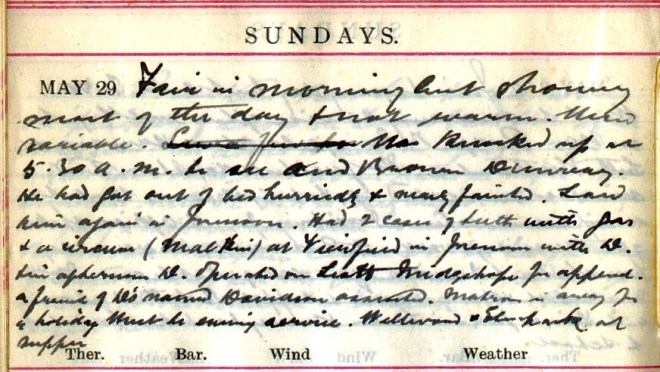 SUNDAYS.
MAY 29 Fair in morning but showery
most of the day & not warm. Wind
variable. Knocked up at
5.30 a.m. to see Brown
He had got out of bed hurriedly & nearly fainted. Saw
him again in forenoon. Had 2 cases of teeth with gas
& a circum ( ) at in forenoon with D.
afternoon D. operated on for append.
a friend of D's named Davidson assisted. Matron is away for
a holiday to evening service. at
supper
Ther. Bar. Wind Weather